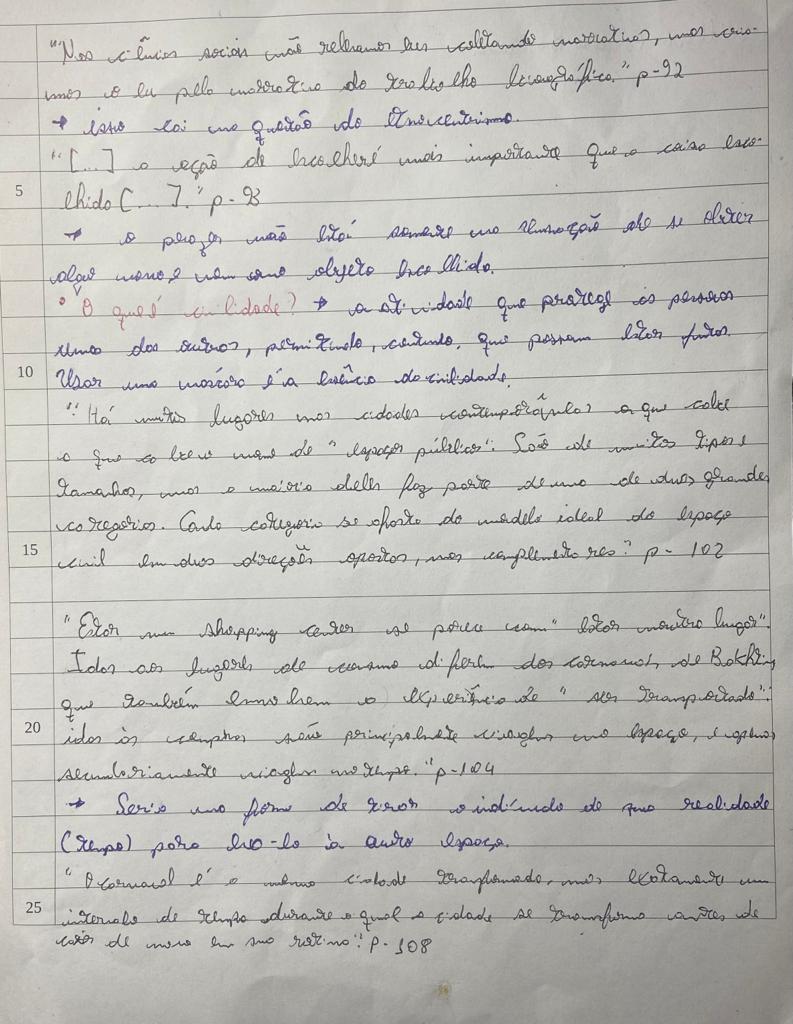 "Nas ciências sociais não relevamos eus coletando narrativas, mas cria-
mos o eu pela narrativa do trabalho biográfico." p-92
→ isso cai na questão do Etnocentrismo.
"[...] a ação de escolher é mais importante que a coisa esco-
5
lhida [...]." p-93
→ o prazer não está somente na sensação de se obter
algo novo, e nem como objeto escolhido.
• O que é civilidade? → a atividade que protege as pessoas
umas das outras, permitindo, contudo, que possam estar juntas.
10
Usar uma máscara é a essência da civilidade.
"Há muitos lugares nas cidades contemporâneas a que cabe
o nome de "espaços públicos". São de muitos tipos e
tamanhos, mas a maioria deles faz parte de uma de duas grandes
categorias. Cada categoria se afasta do modelo ideal do espaço
15
civil em duas direções opostas, mas complementares" p- 102
"Estar num shopping center se parece com "estar noutro lugar".
Idas aos lugares de consumo diferem dos carnavais de Bakhtin,
que também envolvem a experiência de "ser transportado":
20
idas às compras são principalmente viagens no espaço, e apenas
secundariamente viagens no tempo." p-104
→ Seria uma forma de tirar o indivíduo de sua realidade
(tempo) para levá-lo à outro espaço.
"O carnaval é a mesma cidade transformada, mais exatamente um
25
intervalo de tempo durante o qual a cidade se transforma antes de
cair de novo em sua rotina". p- 108